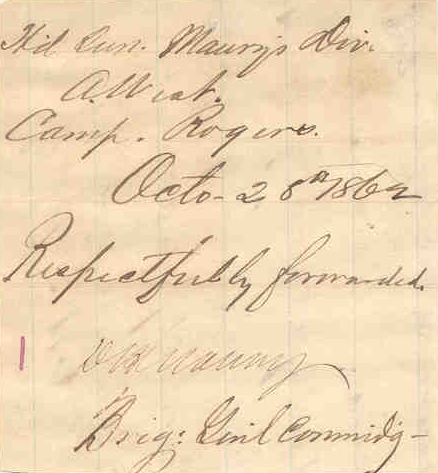 Hd Qurs. Maury's Div.
A. West.
Camp. Rogers.
Octo. 28th 1862
Respectfully forwarded.
D H Maury
Brig: Genl Commdg